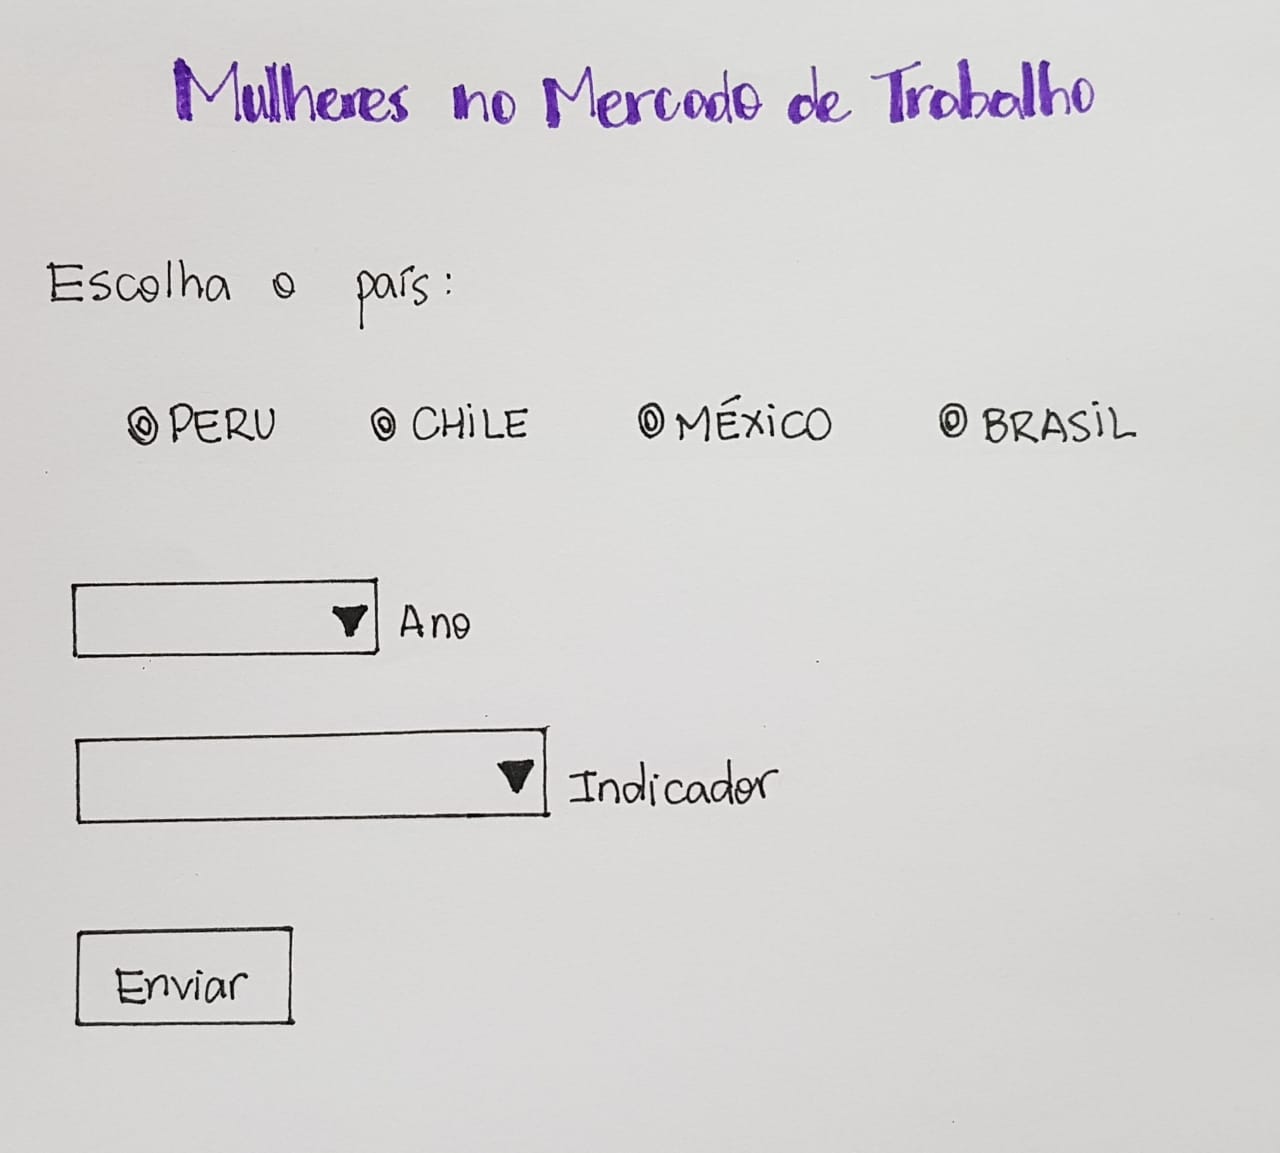 Mulheres no Mercado de Trabalho
Escolha o país:
PERU CHILE MÉXICO BRASIL
Ano
Indicador
Enviar